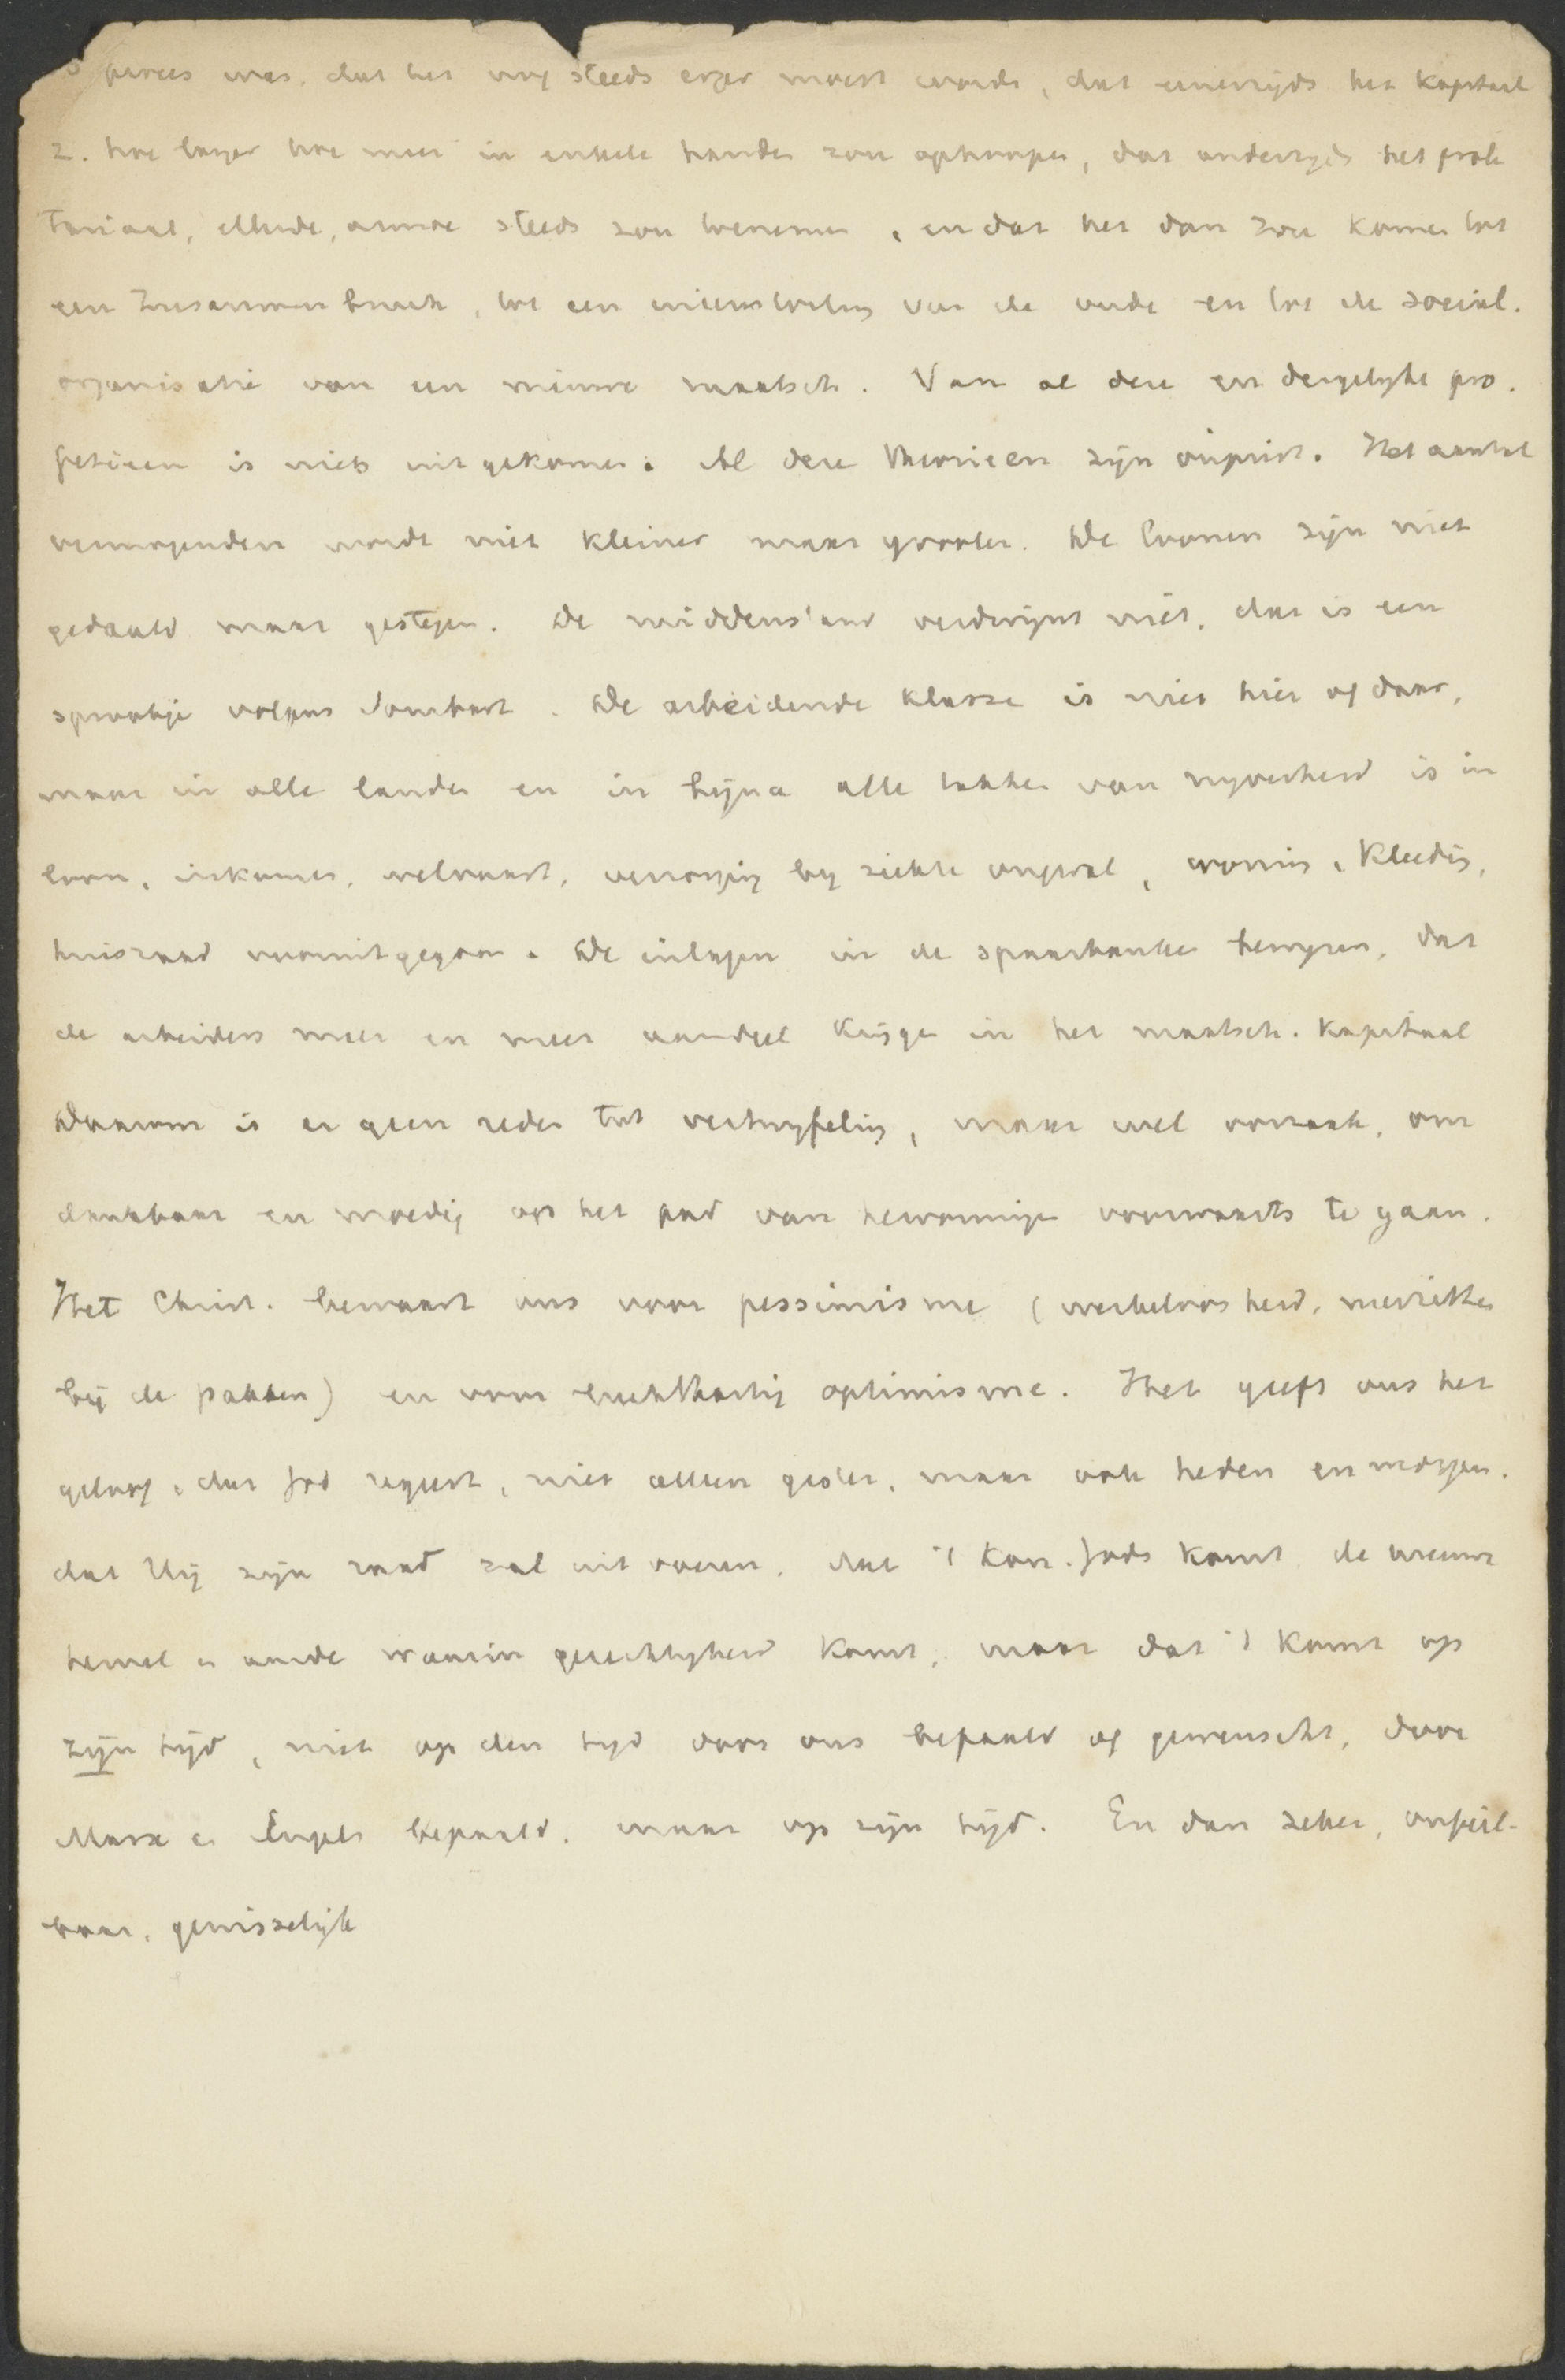 proces was, dat het nog steeds erger moest worden, dat eenerzijds het kapitaal
2. hoe langer hoe meer in enkele handen zou ophoopen, dat anderzijds het prole
tariaat, ellende, armoe steeds zou toenemen, en dat het dan zou komen tot
een Zusammenbruch, tot een ineenstorting van de oude en tot de social.
organisatie van een nieuwe maatsch. Van al deze en dergelijke pro.
fetieen is niets uitgekomen. Al deze theorieen zijn onjuist. Het aantal
vermogenden wordt niet kleiner maar grooter. De loonen zijn niet
gedaald maar gestegen. De middenstand verdwijnt niet, dat is een
sprookje volgens Sombart. De arbeidende klasse is niet hier of daar,
maar in alle landen en in bijna alle takken van nijverheid is in
loon, inkomen, welvaart, verzorging bij ziekte ongeval, woning, kleeding,
huisraad vooruitgegaan. De inlagen in de spaarbanken bewijzen, dat
de arbeiders meer en meer aandeel krijgen in het maatsch. kapitaal
Daarom is er geen reden tot vertwijfeling, maar wel oorzaak, om
dankbaar en moedig op het pad van hervorming voorwaarts te gaan.
Het Christ. bewaart ons voor pessimisme (werkeloosheid, neerzitten
bij de pakken) en voor luchthartig optimisme. Het geeft ons het
geloof, dat God regeert, niet alleen gister, maar ook heden en morgen.
dat Hij zijn raad zal uitvoeren, dat 't Kon. Gods komt, de nieuwe
hemel en aarde waarin gerechtigheid komt, maar dat 't komt op
zijn tijd, niet op den tijd door ons bepaald of gewenscht, door
Marx en Engels bepaald, maar op zijn tijd. En dan zeker, onfeil-
baar, gewisselijk